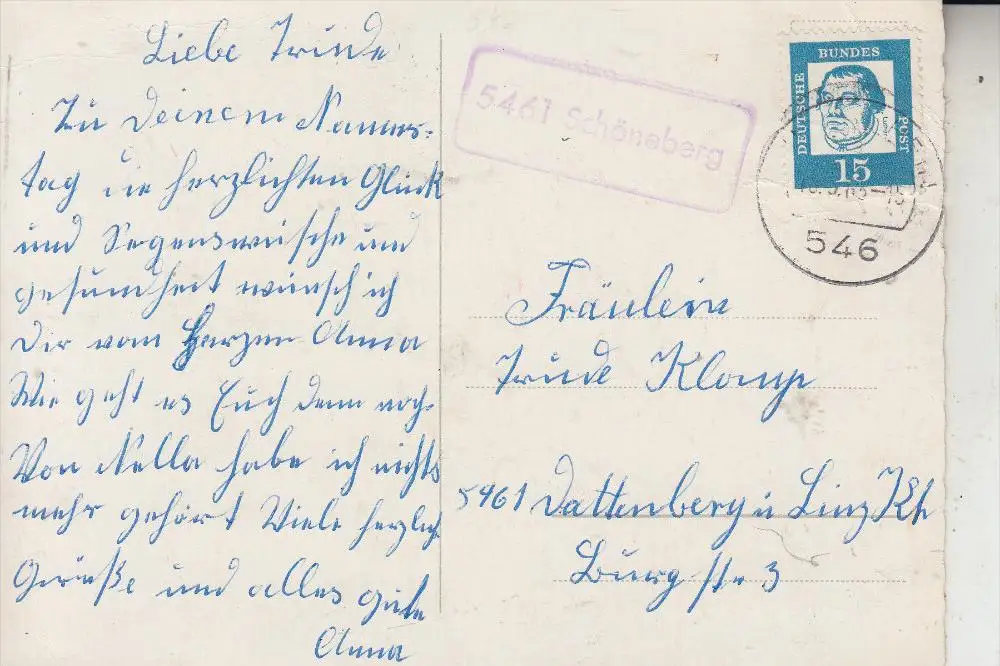 Liebe Trude
Zu Deinem Namens-
tag die herzlichten Glück
und Segenswüsche und
gesundheit wünsch ich
Dir vom Herzen Anna
Wie geht es Euch denn noch.
Von Nella habe ich nichts
mehr gehört Viele herzlich
Grüße und alles gute
Anna
5461 Schöneberg
DEUTSCHE BUNDES POST
15
546
Fräulein
Trude Klamp
5461 Dattenberg ü Linz Rh
Burg str 3